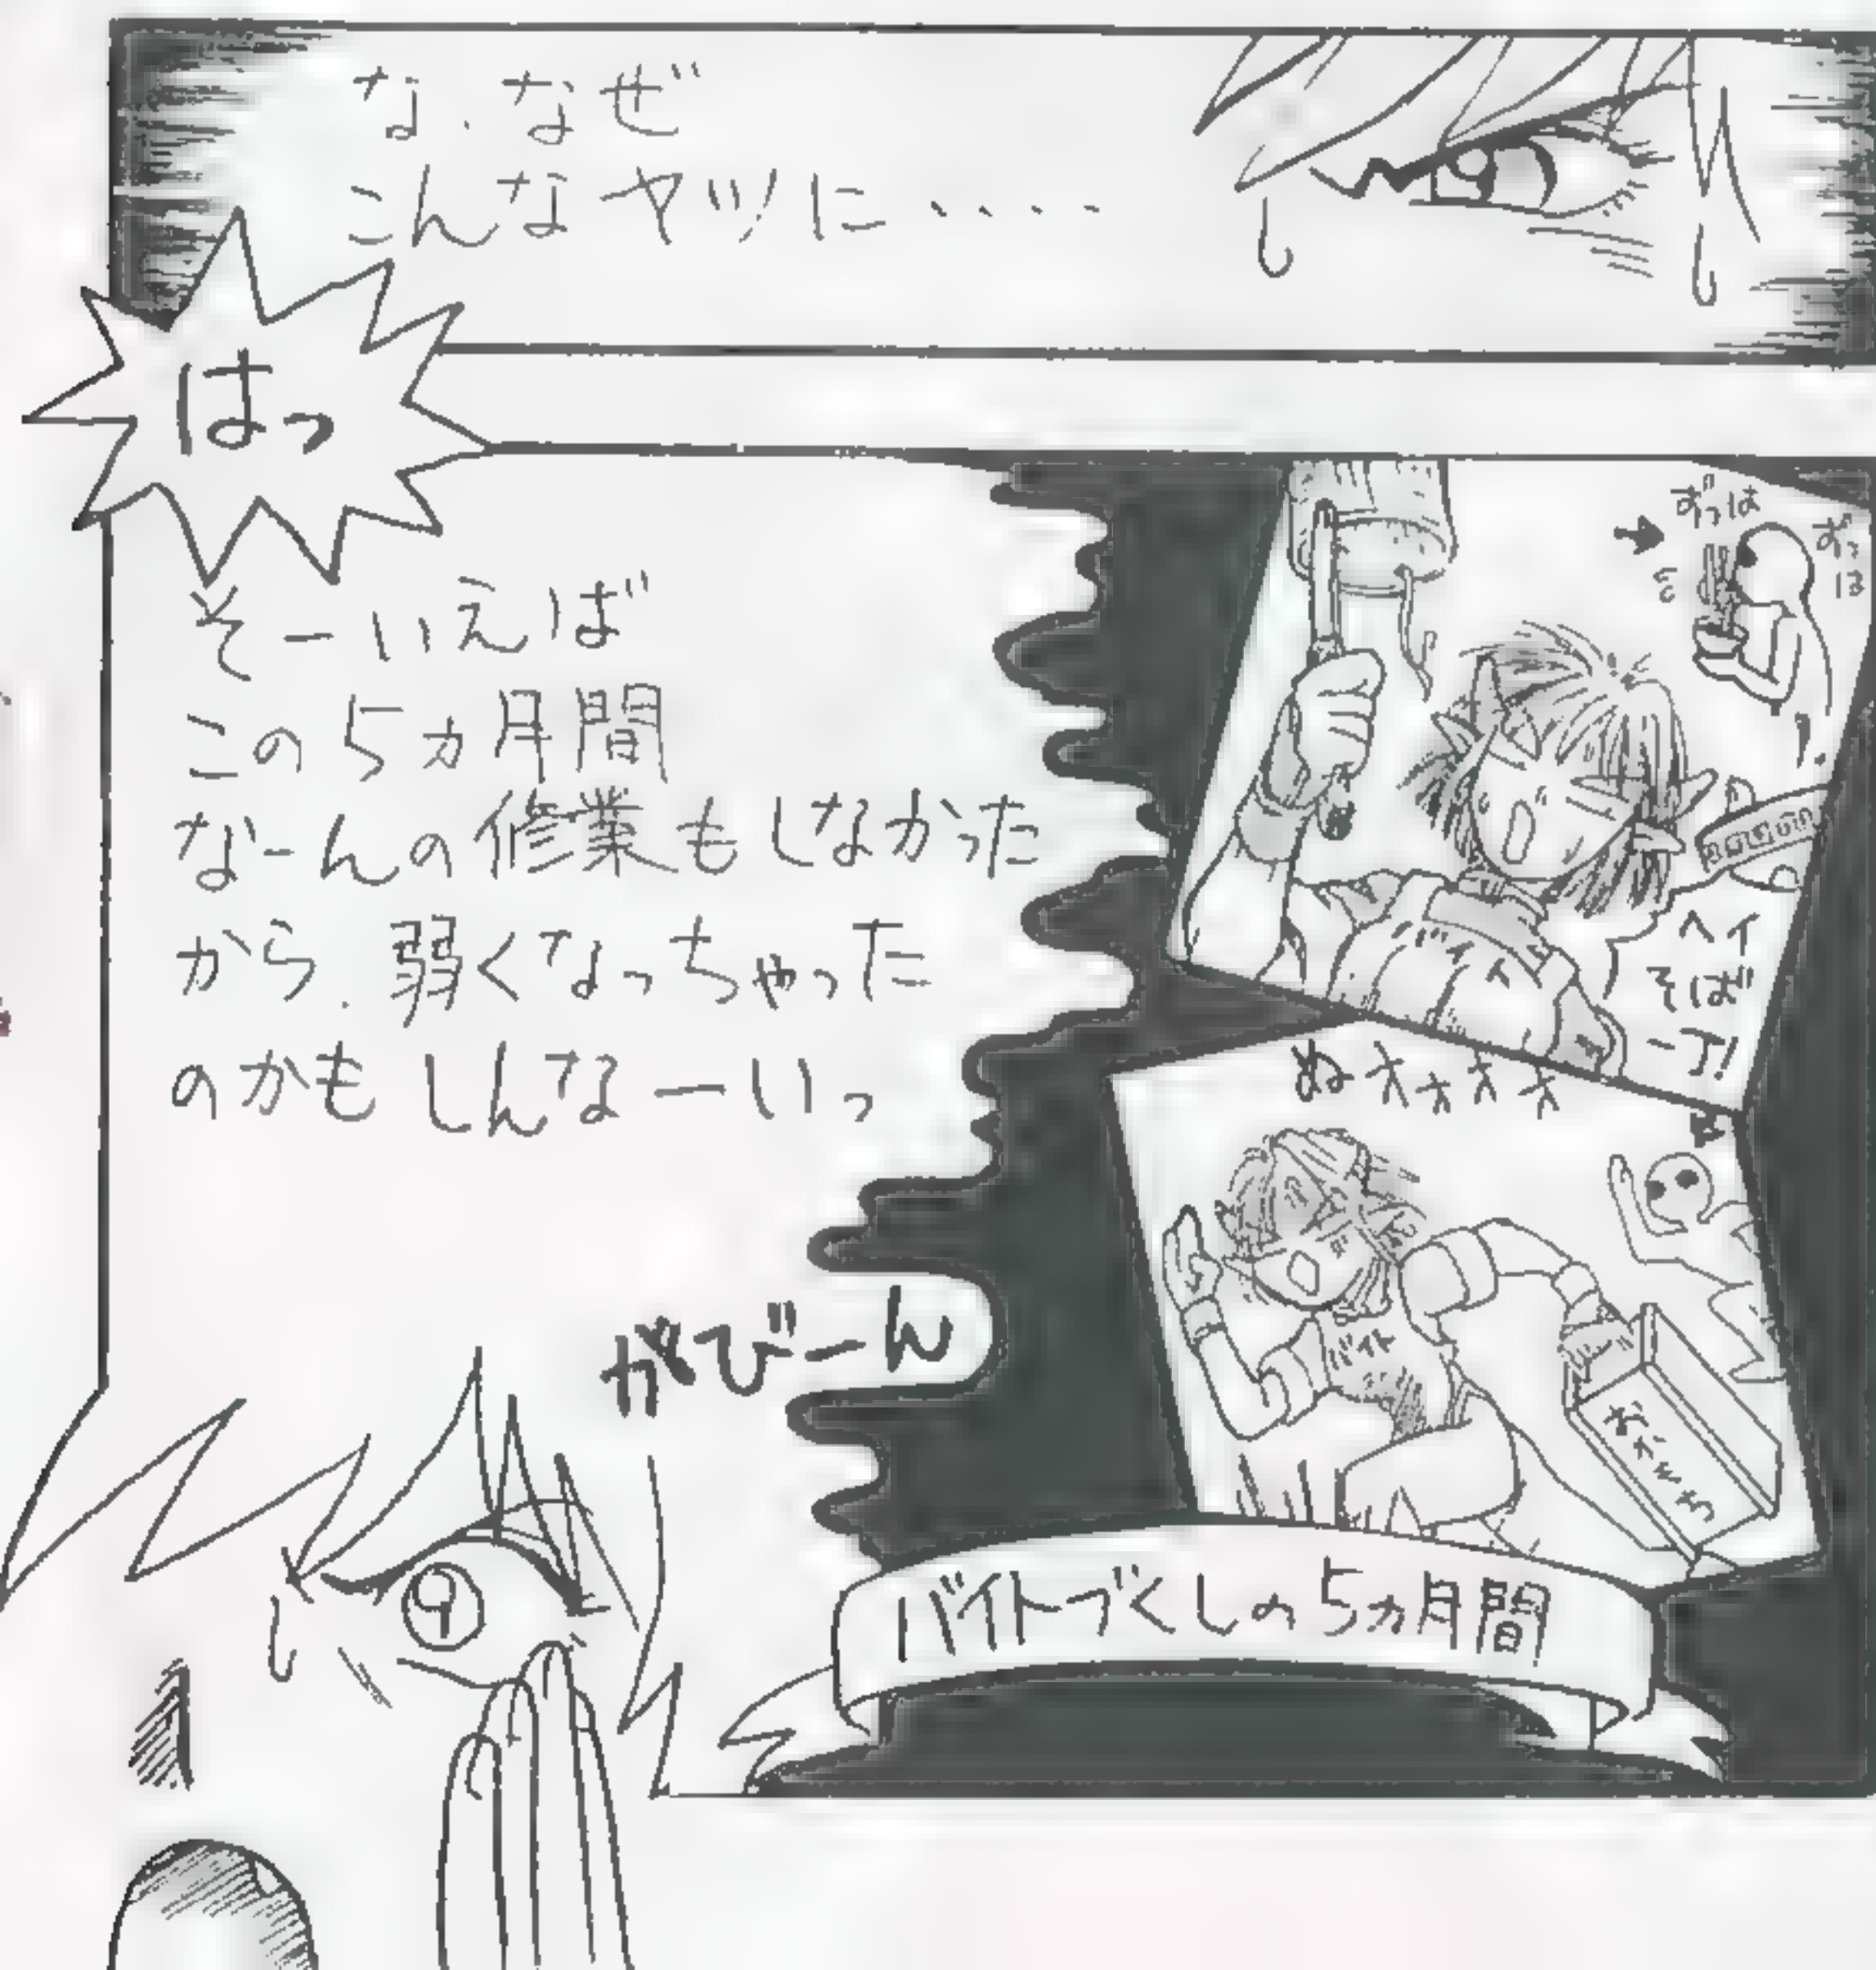 な、なぜ
こんなヤツに・・・・
はっ
そーいえば
この5カ月間
なーんの修業もしなかった
から、弱くなっちゃった
のかもしんなーいっ
がびーん
ずっは
ずっは
バイト
ヘイ
そば
一丁!
ぬオオオオ
バイト
おかもち
バイトづくしの5カ月間